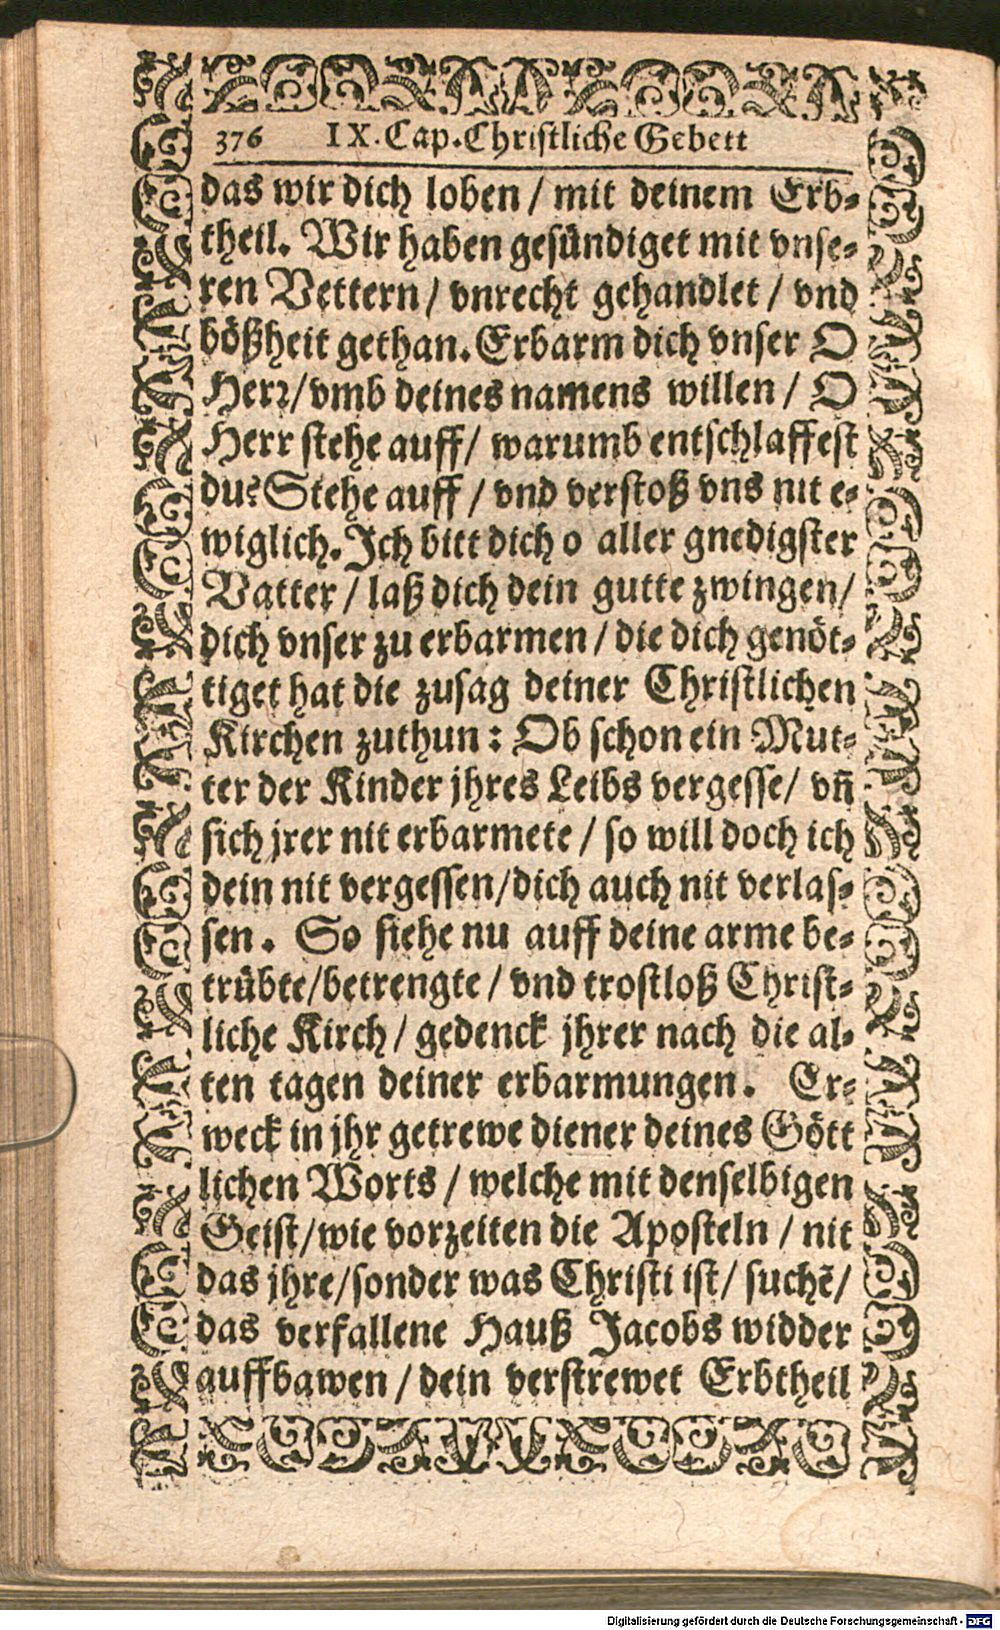 376 IX. Cap. Christliche Gebett
das wir dich loben / mit deinem Erb-
theil. Wir haben gesündiget mit vnse-
ren Vettern / vnrecht gehandlet / vnd
bößheit gethan. Erbarm dich vnser O
Herr / vmb deines namens willen / O
Herr stehe auff / warumb entschlaffest
du? Stehe auff / vnd verstoß vns nit e-
wiglich. Ich bitt dich o aller gnedigster
Vatter / laß dich dein gutte zwingen /
dich vnser zu erbarmen / die dich genöt-
tiget hat die zusag deiner Christlichen
Kirchen zuthun: Ob schon ein Mut-
ter der Kinder jhres Leibs vergesse / vñ
sich jrer nit erbarmete / so will doch ich
dein nit vergessen / dich auch nit verlas-
sen. So siehe nu auff deine arme be-
trübte / betrengte / vnd trostloß Christ-
liche Kirch / gedenck jhrer nach die al-
ten tagen deiner erbarmungen. Er-
weck in jhr getrewe diener deines Gött
lichen Worts / welche mit denselbigen
Geist / wie vorzeiten die Aposteln / nit
das jhre / sonder was Christi ist / suchē /
das verfallene Hauß Jacobs widder
auffbawen / dein verstrewet Erbtheil
Digitalisierung gefördert durch die Deutsche Forschungsgemeinschaft - DFG